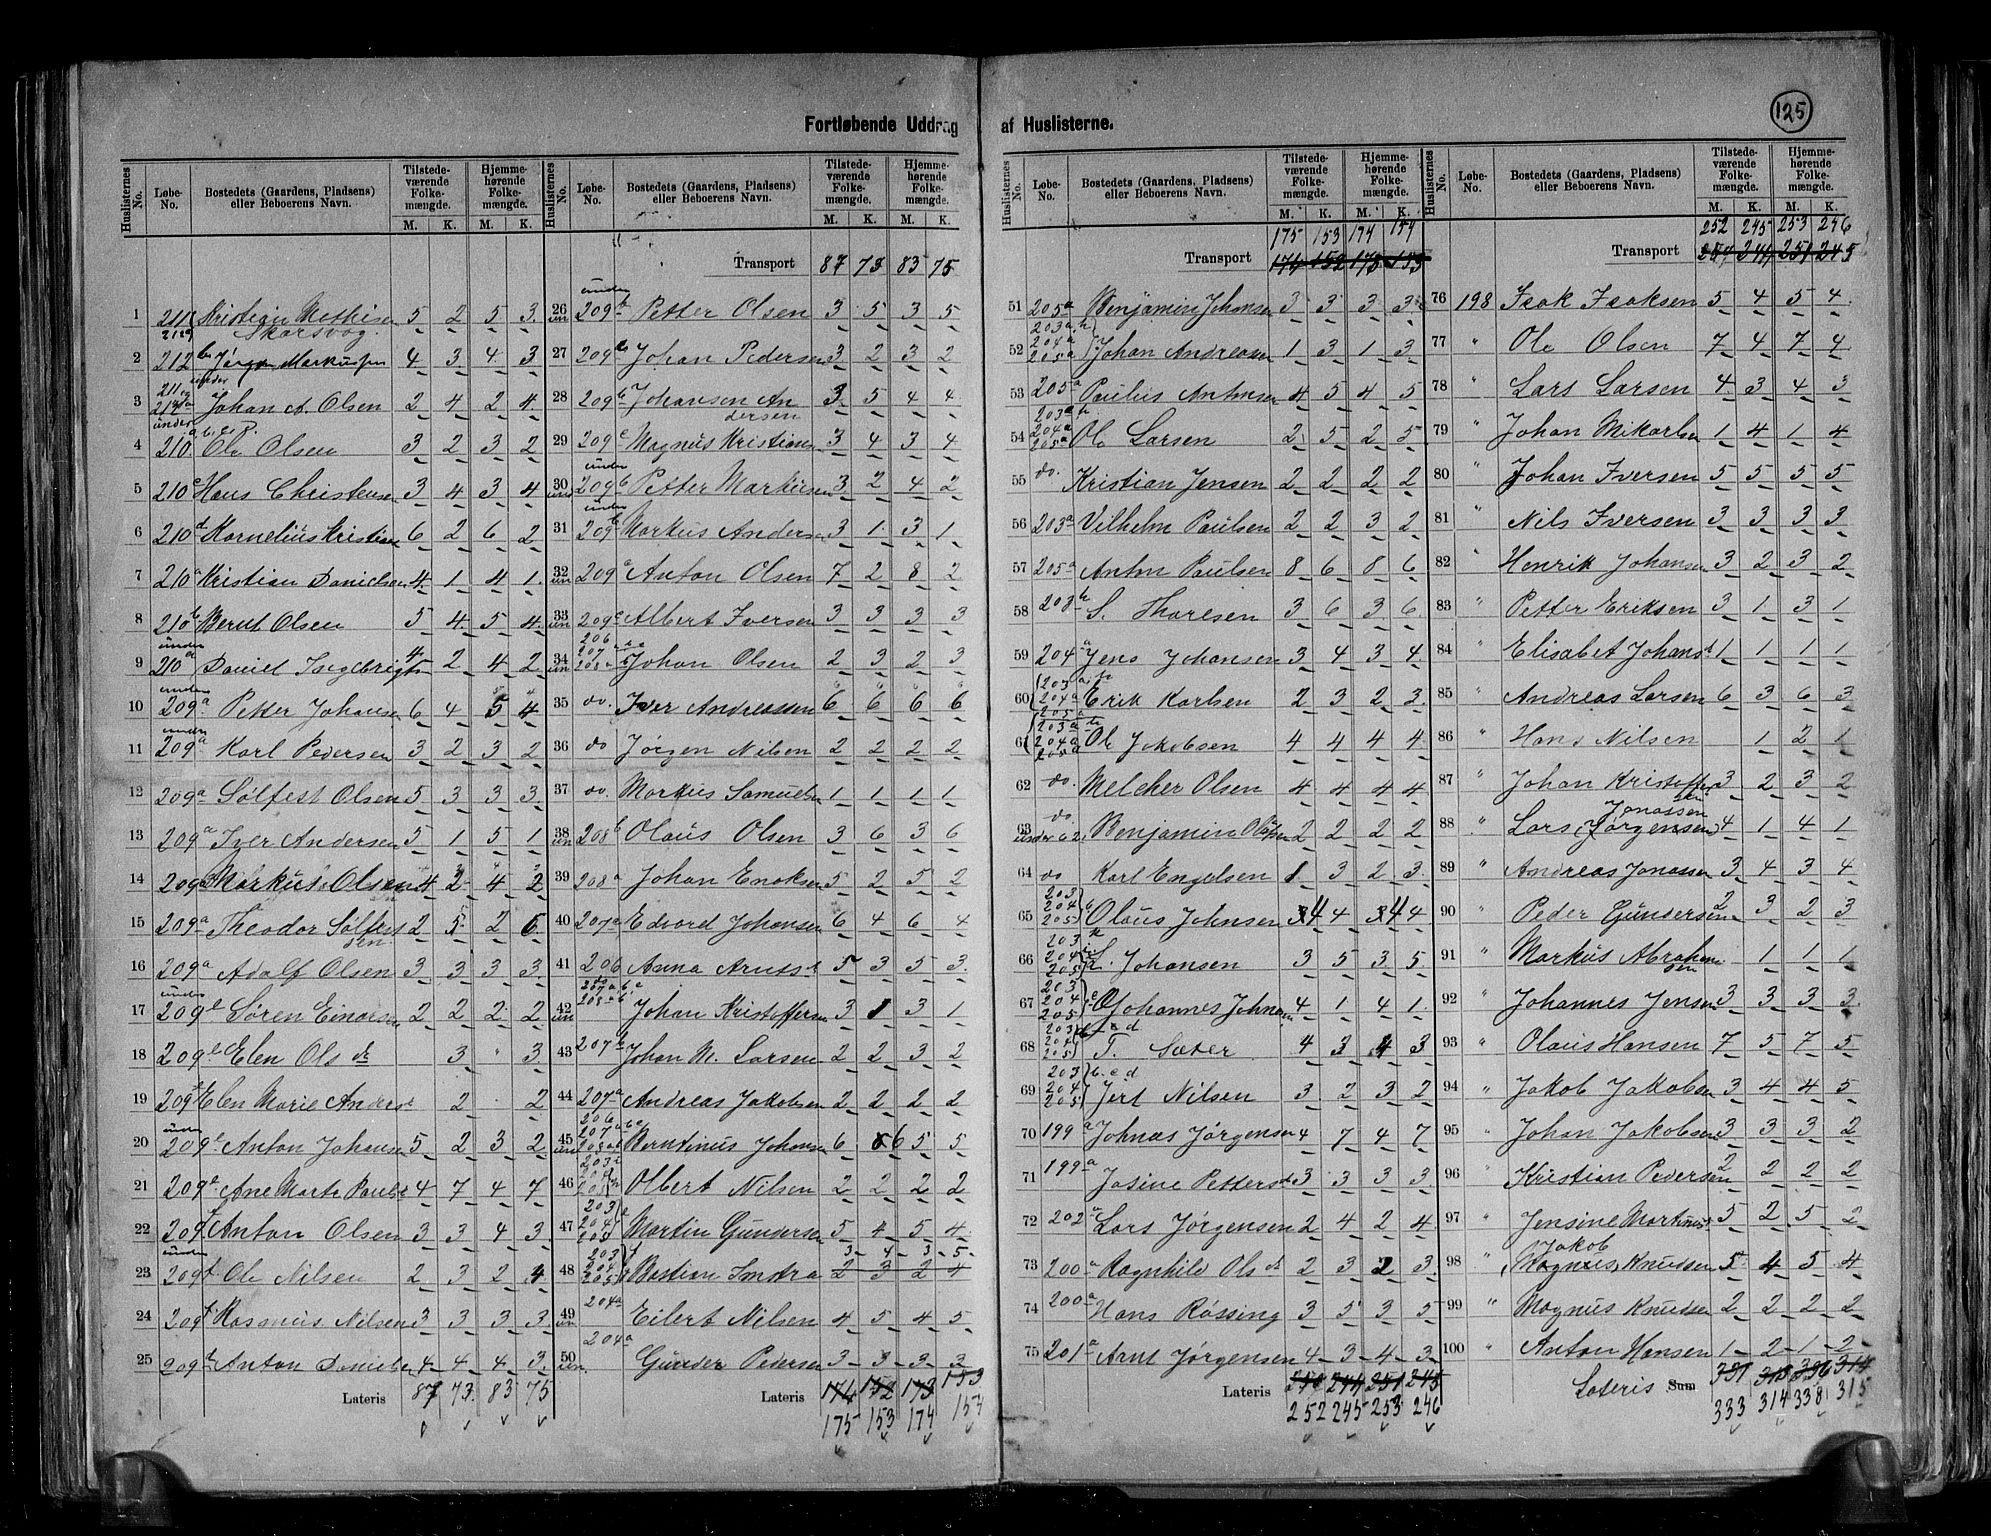 Fortløbende Uddrag af Huslisterne.
125
Huslisternes No. Løbe-No. Bostedets (Gaardens, Pladsens) eller Beboerens Navn. Tilstedeværende Folkemængde. M. K. Hjemmehørende Folkemængde. M. K.
1 211 2129 Kristian Mathisen Skarsvog. 5 2 5 3
2 212 b Jørgen Markussen 4 3 4 3
3 Johan A. Olsen 2 4 2 4
4 under 210 a. b. c. d. Ole Olsen 3 2 3 2
5 210 c Hans Christensen 3 4 3 4
6 210 d Kornelius Kristian 6 2 6 2
7 210 a Kristian Danielsen 4 1 4 1
8 210 b Bernt Olsen 5 4 5 4
9 under 210 a Daniel Ingebrigts 4 2 4 2
10 under 209 a Petter Johansen 6 4 5 4
11 under 209 a Karl Pedersen 3 2 3 2
12 209 a Sølfest Olsen 5 3 3 3
13 209 a Iver Andersen 5 1 5 1
14 209 a Markus Olsen 4 2 4 2
15 209 a Theodor Sølfestsen 2 5 2 6
16 209 a Adolf Olsen 3 3 3 3
17 under 209 Søren Einarsen 2 2 2 2
18 209 Elen Ols dr 3 " 3
19 209 Elen Marie Anders 2 2
20 under 209 Anton Johansen 5 2 3 2
21 209 Ane Marte Pauls 4 7 4 7
22 209 Anton Olsen 3 3 4 3
23 under 209 Ole Nilsen 2 3 2 4
24 209 Rasmus Nilsen 3 3 3 3
25 209 Anton Daniels 4 4 4 3
Lateris 87 73 83 75
Huslisternes No. Løbe-No. Bostedets (Gaardens, Pladsens) eller Beboerens Navn. Tilstedeværende Folkemængde. M. K. Hjemmehørende Folkemængde. M. K.
Transport 87 73 83 75
26 under 209 b Petter Olsen 3 5 3 5
27 209 Johan Pedersen 3 2 3 2
28 209 b Johansen Andersen 3 5 4 4
29 209 c Magnus Kristians 3 4 3 4
30 under 209 b Petter Markusen 3 2 4 2
31 under 209 b Markus Anders 3 1 3 1
32 209 a Anton Olsen 7 2 8 2
33 209 c Albert Iversen 3 3 3 3
34 206 207 208 Johan Olsen 2 3 2 3
35 do. Iver Andreassen 6 6 6 6
36 do Jørgen Nilsen 2 2 2 2
37 do. Markus Samuelsn 1 1 1 1
38 208 b Olaus Olsen 3 6 3 6
39 208 a Johan Enoksen 5 2 5 2
40 207 a Edvard Johansen 6 4 6 4
41 206 Anna Arnts 5 3 5 3
42 207 a b c 208 a b Johan Kristoffersen 3 1 3 1
43 207 Johan M. Larsen 2 2 3 2
44 207 a Andreas Jakobsen 2 2 2 2
45 206 207 a b c 208 a b Berntinus Johansen 6 6 5 5
46 Olbert Nilsen 2 2 2 2
47 203 204 205 Martin Gundersen 5 4 5 4
3 4 3 5
48 203 204 205 Bastian Indra 2 3 2 4
49 204 a Eilert Nilsen 4 5 4 5
50 204 a Gunder Pedersen 3 3 3 3
Lateris 174 152 173 153
175 153 174 154
Huslisternes No. Løbe-No. Bostedets (Gaardens, Pladsens) eller Beboerens Navn. Tilstedeværende Folkemængde. M. K. Hjemmehørende Folkemængde. M. K.
175 153 174 154
Transport 174 152 173 153
51 205 a Benjamin Johansen 3 3 3 3
52 203 a. b 204 a 205 a Johan Andreasen 1 3 1 3
53 205 a Paulus Antonsen 4 5 4 5
54 203 a b 204 a 205 a Ole Larsen 2 5 2 5
55 do. Kristian Jensen 2 2 2 2
56 203 a Vilhelm Paulsen 2 2 3 2
57 205 a Anton Paulsen 8 6 8 6
58 203 b S. Thoresen 3 6 3 6
59 204 a Jens Johansen 3 4 3 4
60 203 a. b 204 a 205 a Erik Karlsen 2 3 2 3
61 203 a b 204 a 205 a Ole Jakobsen 4 4 4 4
62 do. Melcher Olsen 4 4 4 4
63 under 62 do Benjamin Olsen 2 2 2 2
64 do Karl Engelsen 1 3 2 3
65 203 204 205 Olaus Johnsen 4 4 4 4
66 203 204 205 L. Johansen 3 5 3 5
67 203 204 205 Johannes Johnsen 4 1 4 1
68 203 204 205 T. Sæter 4 3 4 3
69 203 204 205 b. c d Jert Nilsen 3 2 3 2
70 199 a Johnas Jørgensen 4 7 4 7
71 199 a Josine Petters 3 3 3 3
72 202 a Lars Jørgensen 2 4 2 4
73 200 a Ragnhild Ols dr 2 3 2 3
74 200 a Hans Røssing 3 5 3 5
75 201 a Arnt Jørgensen 4 3 4 3
Lateris 250 244 251 245
252 245 253 246
Huslisternes No. Løbe-No. Bostedets (Gaardens, Pladsens) eller Beboerens Navn. Tilstedeværende Folkemængde. M. K. Hjemmehørende Folkemængde. M. K.
252 245 253 246
Transport 250 244 251 245
76 198 Isak Isaksen 5 4 5 4
77 " Ole Olsen 7 4 7 4
78 " Lars Larsen 4 3 4 3
79 " Johan Mikarlsen 1 4 1 4
80 " Johan Iversen 5 5 5 5
81 " Nils Iversen 3 3 3 3
82 " Henrik Johansen 3 2 3 2
83 " Petter Eriksen 3 1 3 1
84 " Elisabet Johans 1 1 1 1
85 " Andreas Larsen 6 3 6 3
86 " Hans Nilsen 1 2 1
87 " Johan Kristoffersen 3 2 3 2
88 " Lars (Jørgensen) Jonassen 4 1 4 1
89 " Andreas Jonassen 3 4 3 4
90 " Peder Gundersen 2 3 2 3
91 " Markus Abrahamsen 1 1 1
92 " Johannes Jensen 3 3 3 3
93 " Olaus Hansen 7 5 7 5
94 " Jakob Jakobsen 3 4 4 5
95 " Johan Jakobsen 3 3 3 2
96 " Kristian Pedersen 2 2 2 2
97 " Jensine Martinus 5 2 5 2
98 " Jakob (Magnus) Knudsen 5 4 5 4
99 " Magnus Knudsen 2 2 2 2
100 " Anton Hansen 1 2 1 2
Lateris Sum 331 313 336 314
333 314 338 315